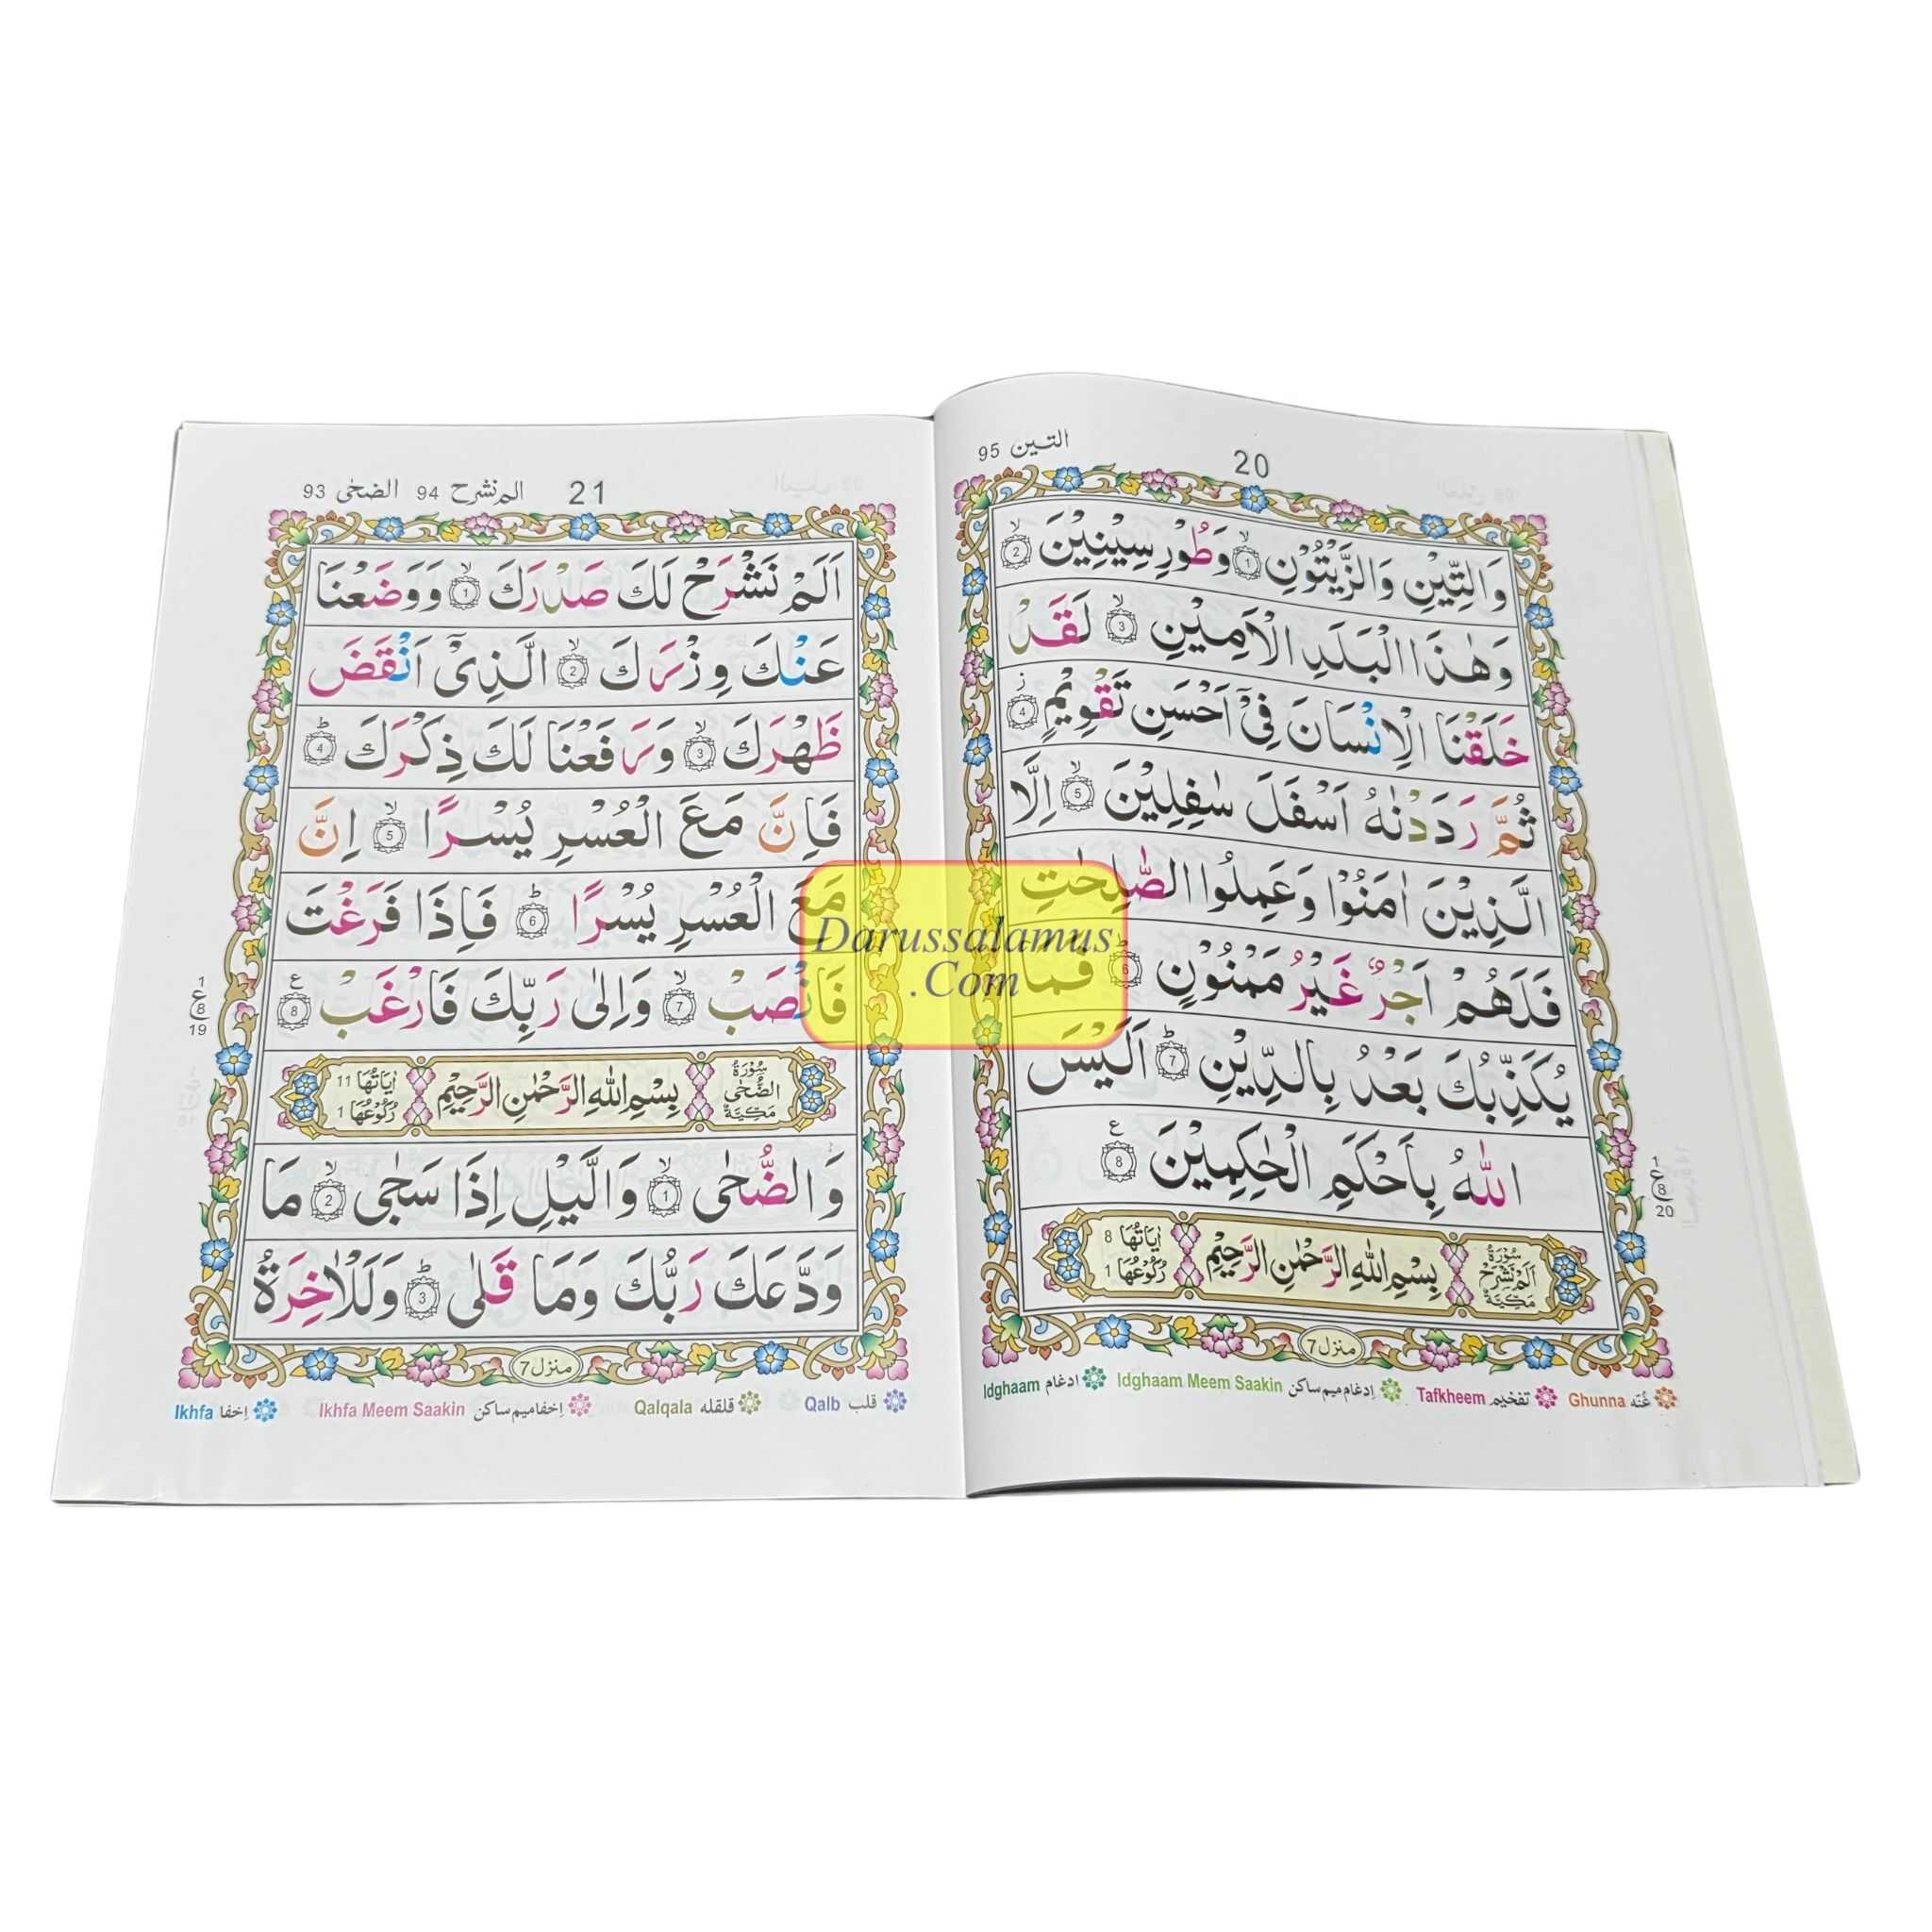 التين 95
20
وَالتِّيْنِ وَالزَّيْتُوْنِ ۙ 1 وَطُوْرِ سِيْنِيْنَ ۙ 2
وَهٰذَا الْبَلَدِ الْاَمِيْنِ ۙ 3 لَقَدْ
خَلَقْنَا الْاِنْسَانَ فِيْۤ اَحْسَنِ تَقْوِيْمٍ ز 4
ثُمَّ رَدَدْنٰهُ اَسْفَلَ سٰفِلِيْنَ ۙ 5 اِلَّا
الَّذِيْنَ اٰمَنُوْا وَعَمِلُوا الصّٰلِحٰتِ
فَلَهُمْ اَجْرٌ غَيْرُ مَمْنُوْنٍ ؕ 6 فَمَا
يُكَذِّبُكَ بَعْدُ بِالدِّيْنِ ؕ 7 اَلَيْسَ
اللّٰهُ بِاَحْكَمِ الْحٰكِمِيْنَ ع 8
1
ع
8
20
سُوْرَةُ اَلَمْ نَشْرَحْ مَكِّيَّةٌ
بِسْمِ اللّٰهِ الرَّحْمٰنِ الرَّحِيْمِ
اٰيَاتُهَا 8
رُكُوْعُهَا 1
منزل 7
Ghunna غُنّه Tafkheem تفخيم Idghaam Meem Saakin اِدغام ميم ساكن Idghaam ادغام
21
الم نشرح 94 الضحٰى 93
اَلَمْ نَشْرَحْ لَكَ صَدْرَكَ ۙ 1 وَوَضَعْنَا
عَنْكَ وِزْرَكَ ۙ 2 الَّذِيْۤ اَنْقَضَ
ظَهْرَكَ ۙ 3 وَرَفَعْنَا لَكَ ذِكْرَكَ ؕ 4
فَاِنَّ مَعَ الْعُسْرِ يُسْرًا ۙ 5 اِنَّ
مَعَ الْعُسْرِ يُسْرًا ؕ 6 فَاِذَا فَرَغْتَ
فَانْصَبْ ۙ 7 وَاِلٰى رَبِّكَ فَارْغَبْ ع 8
1
ع
8
19
سُوْرَةُ الضُّحٰى مَكِّيَّةٌ
بِسْمِ اللّٰهِ الرَّحْمٰنِ الرَّحِيْمِ
اٰيَاتُهَا 11
رُكُوْعُهَا 1
وَالضُّحٰى ۙ 1 وَالَّيْلِ اِذَا سَجٰى ۙ 2 مَا
وَدَّعَكَ رَبُّكَ وَمَا قَلٰى ؕ 3 وَلَلْاٰخِرَةُ
منزل 7
Qalb قلب Qalqala قلقله Ikhfa Meem Saakin اِخفا ميم ساكن Ikhfa اِخفا
Darussalamus
.Com